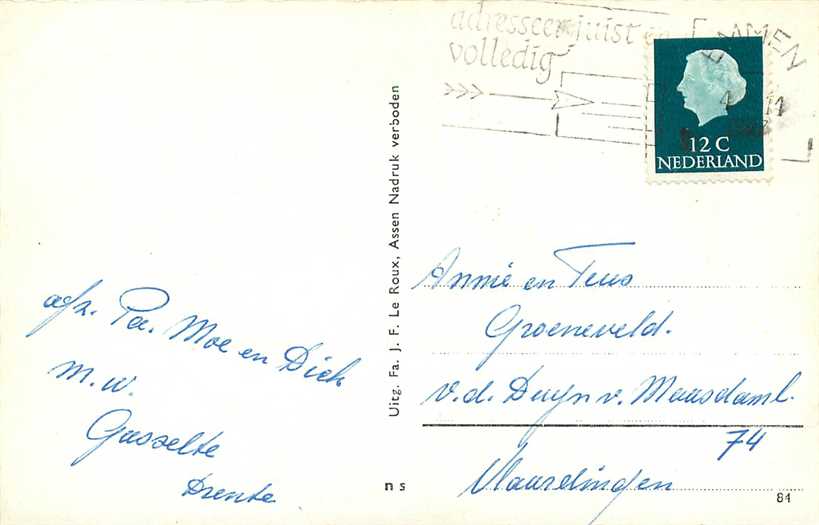 adresseer juist en
volledig
EMMEN
12 C
NEDERLAND
Uitg. Fa. J. F. Le Roux, Assen Nadruk verboden
afz. Pa. Moe en Dick
M. W.
Gasselte
Drente
Annie en Teus
Groeneveld.
v.d. Duyn v. Maasdaml.
74
Vlaardingen
n s
84